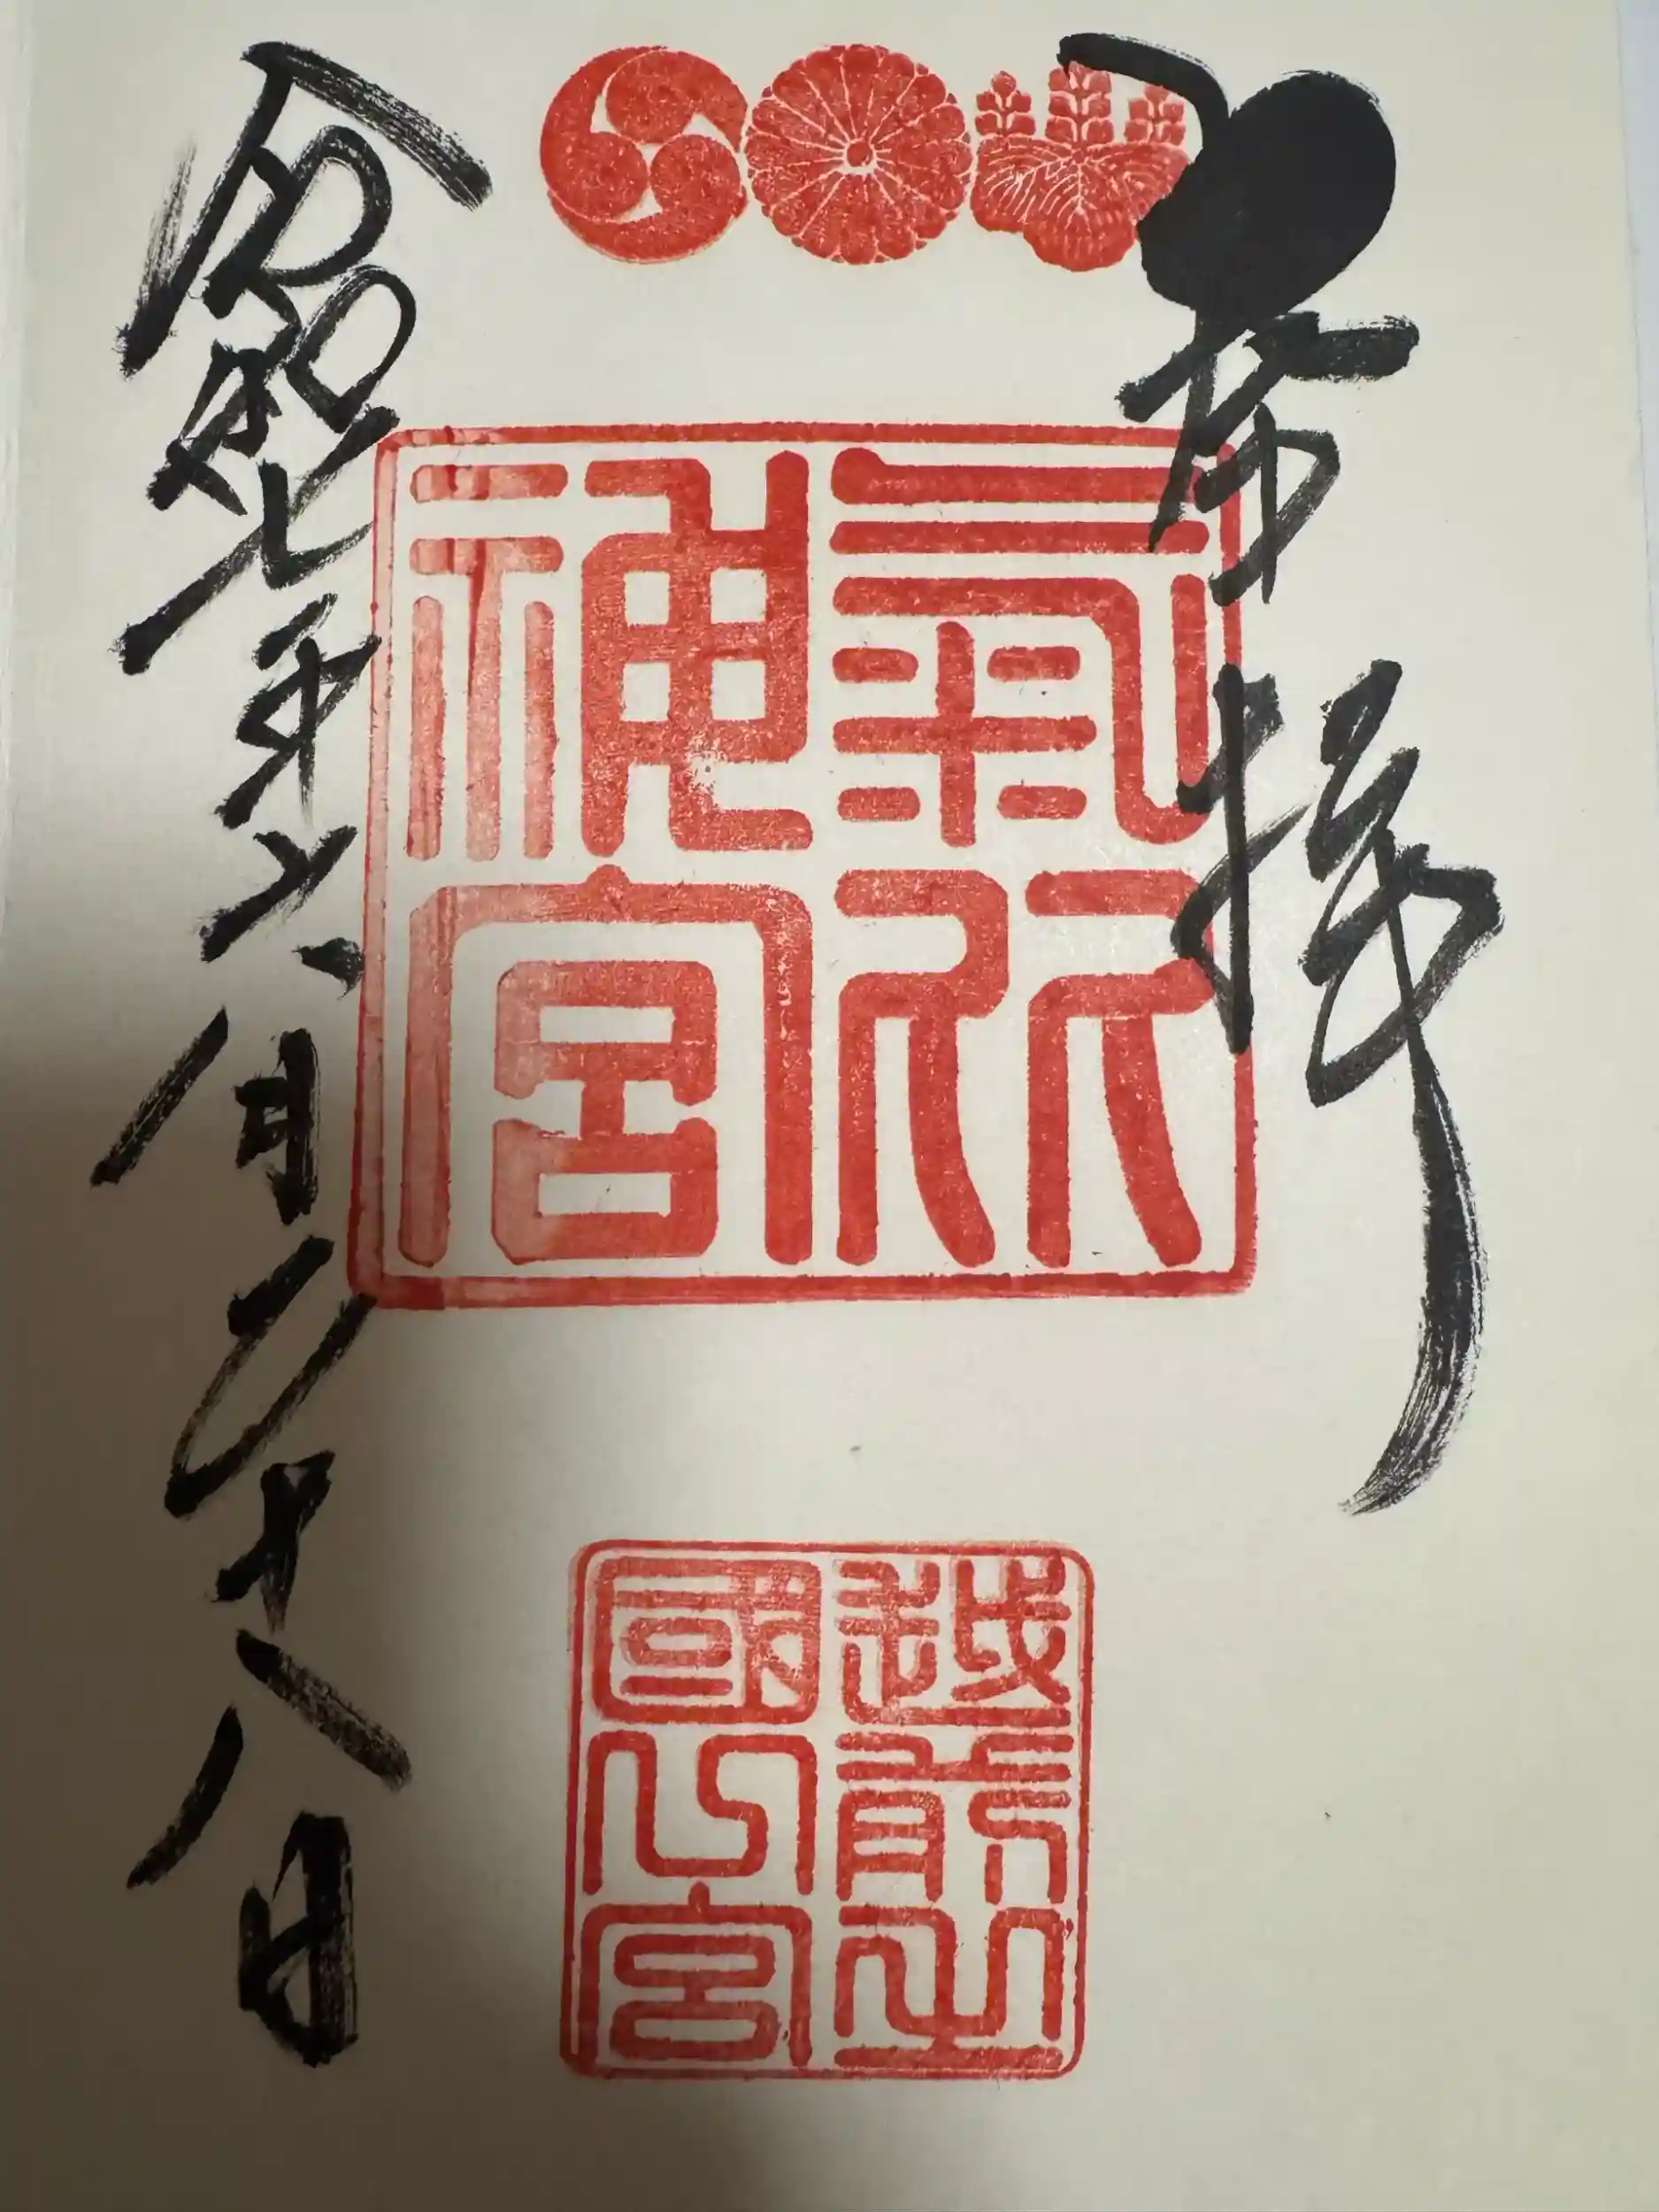 奉拝
氣比
神宮
越前之
國一宮
令和七年六月二十八日